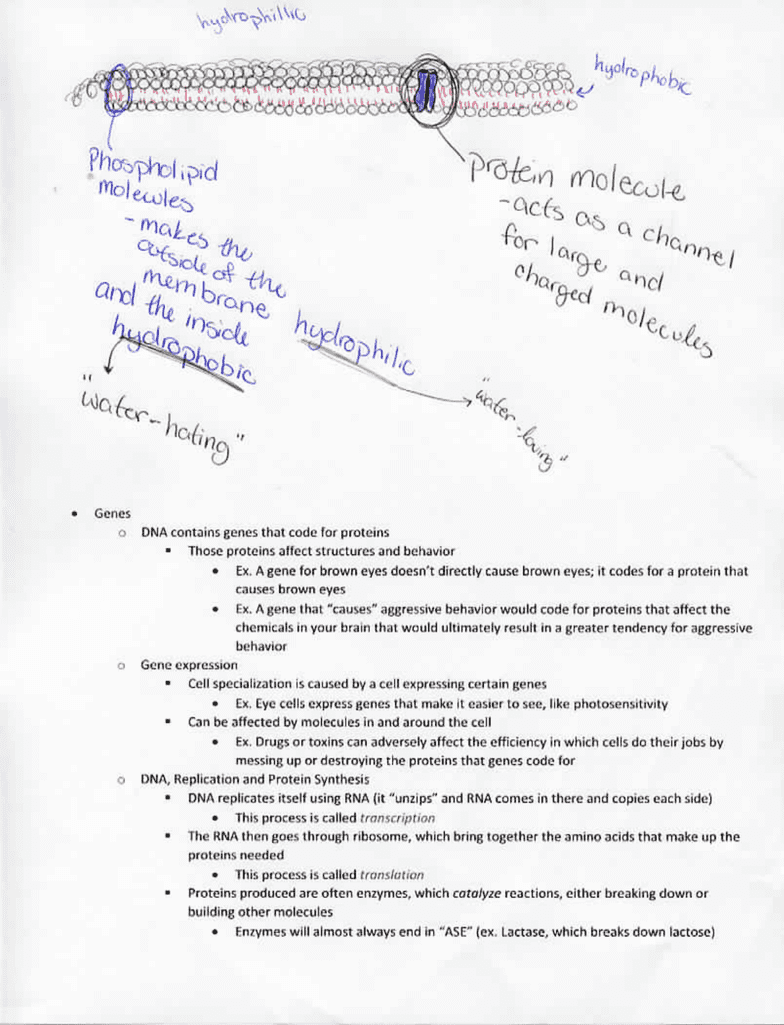 hydrophillic
hydrophobic
Phospholipid
molecules
- makes the
outside of the
membrane hydrophilic
and the inside
hydrophobic
"water-hating"
"water-loving"
protein molecule
- acts as a channel
for large and
charged molecules
• Genes
o DNA contains genes that code for proteins
▪ Those proteins affect structures and behavior
• Ex. A gene for brown eyes doesn't directly cause brown eyes; it codes for a protein that
causes brown eyes
• Ex. A gene that "causes" aggressive behavior would code for proteins that affect the
chemicals in your brain that would ultimately result in a greater tendency for aggressive
behavior
o Gene expression
▪ Cell specialization is caused by a cell expressing certain genes
• Ex. Eye cells express genes that make it easier to see, like photosensitivity
▪ Can be affected by molecules in and around the cell
• Ex. Drugs or toxins can adversely affect the efficiency in which cells do their jobs by
messing up or destroying the proteins that genes code for
o DNA, Replication and Protein Synthesis
▪ DNA replicates itself using RNA (it "unzips" and RNA comes in there and copies each side)
• This process is called transcription
▪ The RNA then goes through ribosome, which bring together the amino acids that make up the
proteins needed
• This process is called translation
▪ Proteins produced are often enzymes, which catalyze reactions, either breaking down or
building other molecules
• Enzymes will almost always end in "ASE" (ex. Lactase, which breaks down lactose)